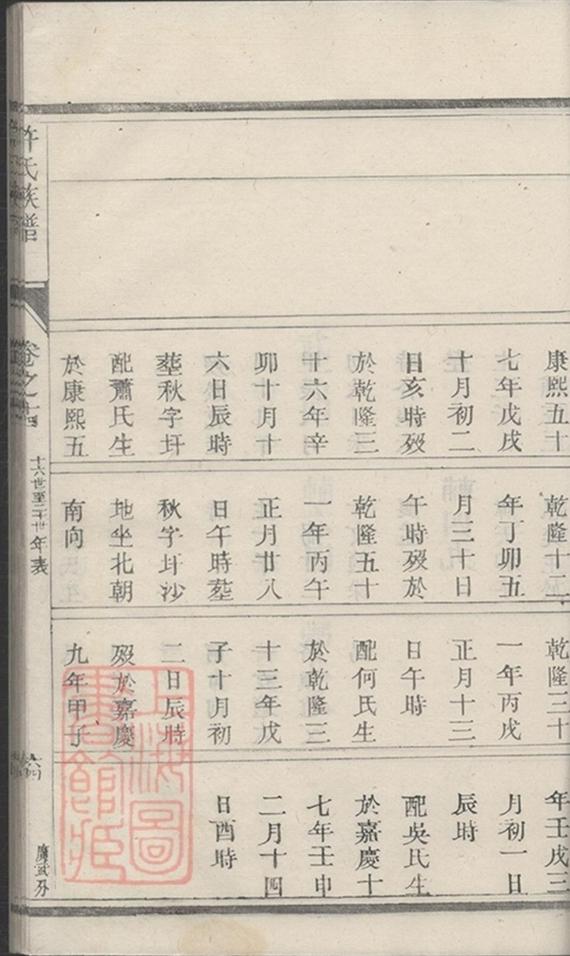 康熙五十
七年戊戌
十月初二
日亥時歿
於乾隆三
十六年辛
卯十月十
六日辰時
塟秋字圩
配蕭氏生
於康熙五
乾隆十二
年丁卯五
月三十日
午時歿於
乾隆五十
一年丙午
正月廿八
日午時塟
秋字圩沙
地坐北朝
南向
乾隆三十
一年丙戌
正月十三
日午時
配何氏生
於乾隆三
十三年戊
子十月初
二日辰時
歿於嘉慶
九年甲子
年壬戌三
月初一日
辰時
配吳氏生
於嘉慶十
七年壬申
二月十四
日酉時
許氏族譜
卷之十四
十六世至二十世年表
上海圖書館藏